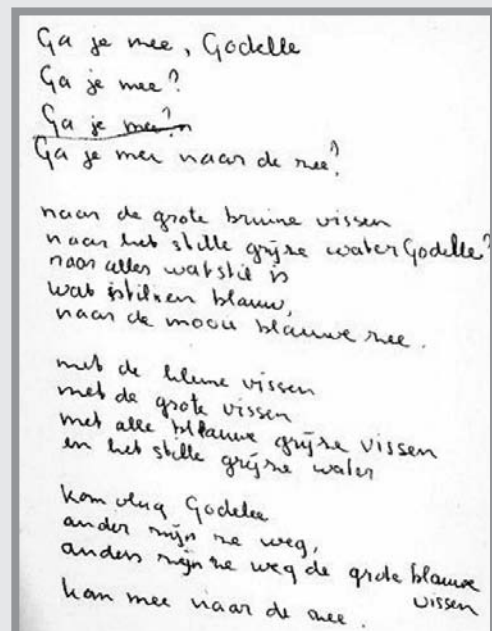 Ga je mee, Godelle
Ga je mee?
Ga je mee?
Ga je mee naar de zee?
naar de grote bruine vissen
naar het stille grijze water Godelle?
naar alles wat stil is
wat stil en blauw,
naar de mooie blauwe zee.
met de kleine vissen
met de grote vissen
met alle blauwe grijze vissen
en het stille grijze water
kom vlug Godelee
ander zijn ze weg,
anders zijn ze weg de grote blauwe
vissen
kom mee naar de zee.